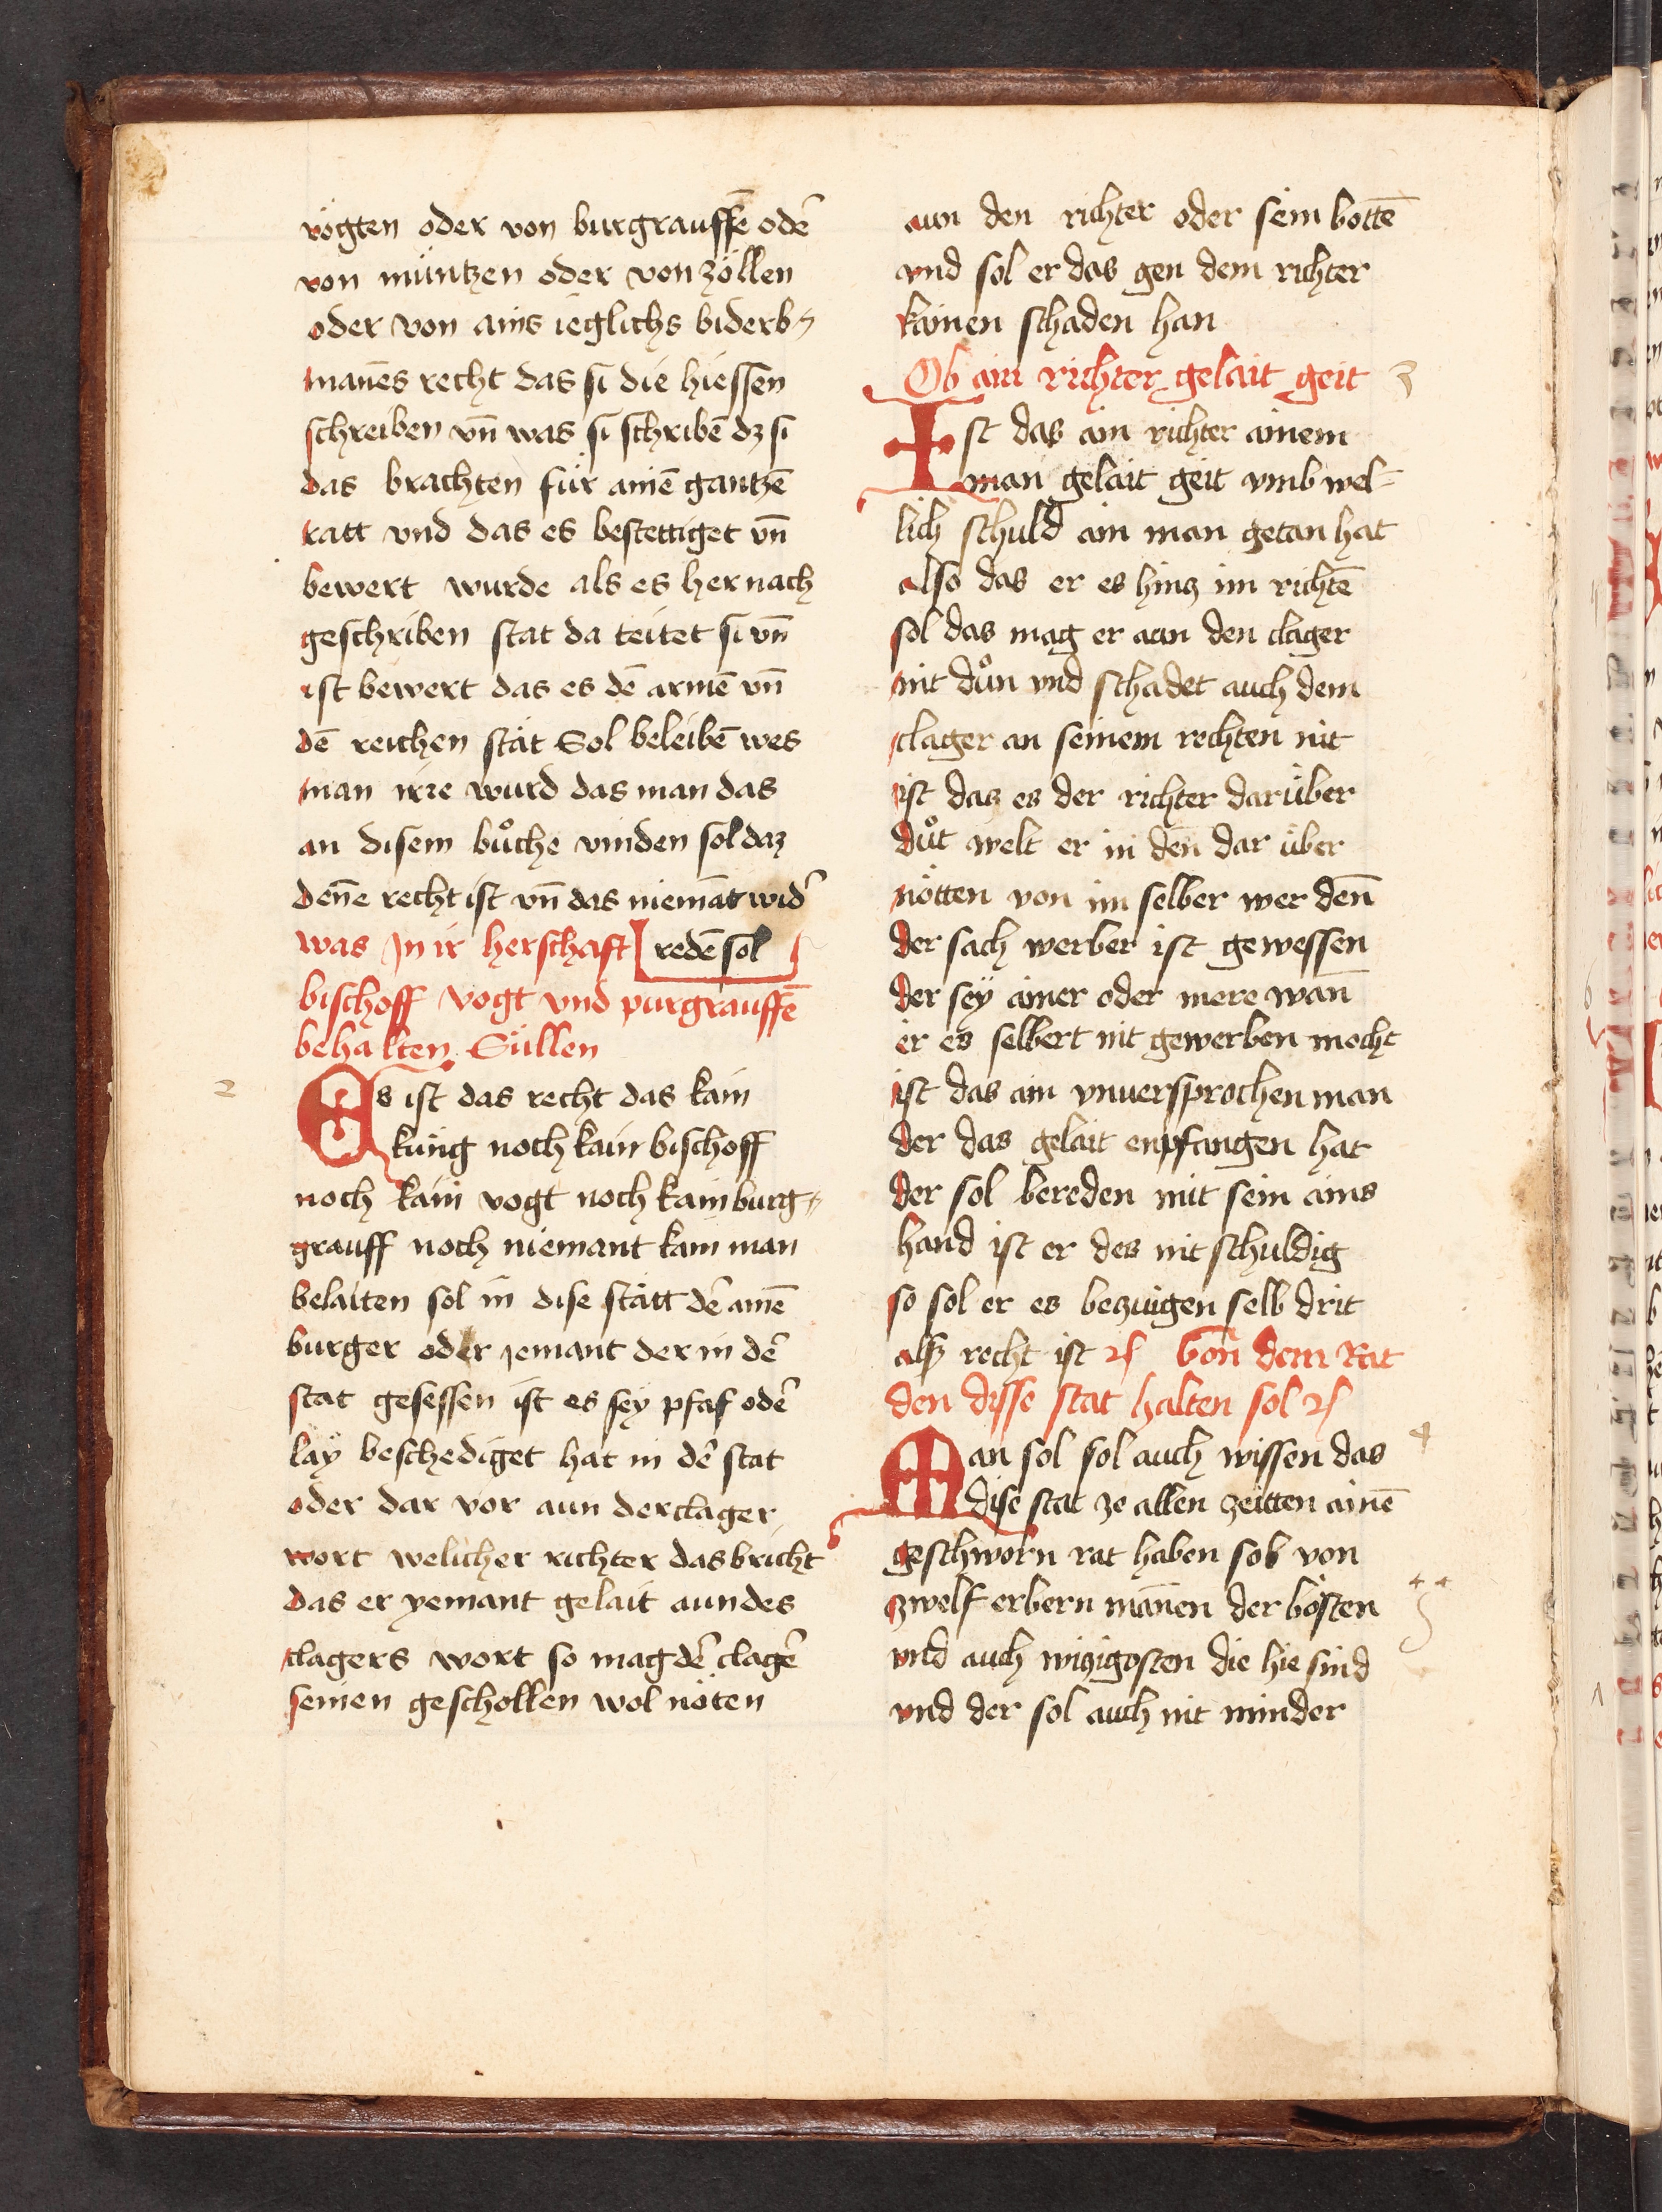 vögten oder von burgrauffē odeˀ
von müntzen oder von zöllen
oder von ains ieglichs biderb⸗
manēs recht das si die hiessen
schreiben vn̄ was si schribē dz si
das brachten für ainē gantzē
ratt vnd das es bestettiget vn̄
bewert wurde als es her nach
geschriben stat da teitet si vn̄
ist bewert das es dē armē vn̄
dē reichen stät Sol beleibē wes
man irre wurd das man das
an disem bůche vinden sol daz
denē recht ist vn̄ das niemāt wideˀ
redē sol
was Jn ir herschaft
bischoff vogt vnd purgrauffē
behalten Süllen
2
Es ist das recht das kain
küng noch kain bischoff
noch kain vogt noch kain burg⸗
grauff noch niemant kain man
belaiten sol in dise stätt deˀ ainē
burger oder jemant der in deˀ
stat gesessen ist es sey pfaf odeˀ
lay beschediget hat in deˀ stat
oder dar vor aun der clager
wort welicher richter das bricht
das er yemant gelait aun des
clagers wort so mag deˀ clageˀ
seinen geschollen wol nöten
aun den richter oder sein bottē
vnd sol er das gen dem richter
kainen schaden han
Ob ain richter gelait geit
3
Ist das ain richter ainem
man gelait geit vmb wel⸗
lich schuld ain man getan hat
also das er es hinz im richtē
sol das mag er aun den clager
nit důn vnd schadet auch dem
clager an seinem rechten nit
ist daz es der richter darüber
důt welt er in den̄ dar über
nötten von im selber wer den̄
der sach werber ist gewessen
der sey ainer oder mere wan̄
er es selbert nit gewerben mocht
ist das ain vnuersprochen man
der das gelait enpfangen hat
der sol bereden mit sein ains
hand ist er des nit schuldig
so sol er es bezuigen selb drit
alß recht ist ꝛc Von dem Rat
den disse stat halten sol ꝛc
4
Man sol sol auch wissen das
dise stat ze allen zeitten ainē
geschworn rat haben sol von
zwelf erbern man̄en der bösten
vnd auch wizigosten die hie sind
vnd der sol auch nit minder